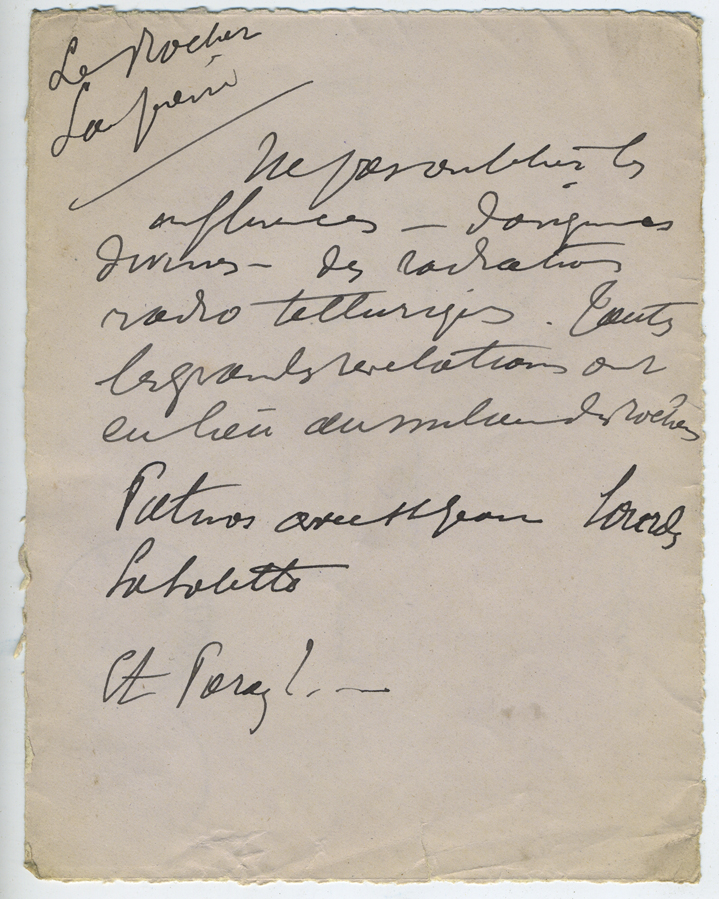 Le Rocher
La pierre
Ne pas oublier les
influences — d'origines
divines — des radiations
radio telluriques. Toutes
les grandes revelations ont
eu lieu au milieu des rochers
Patmos avec St Jean Lourdes
La Salette
Et